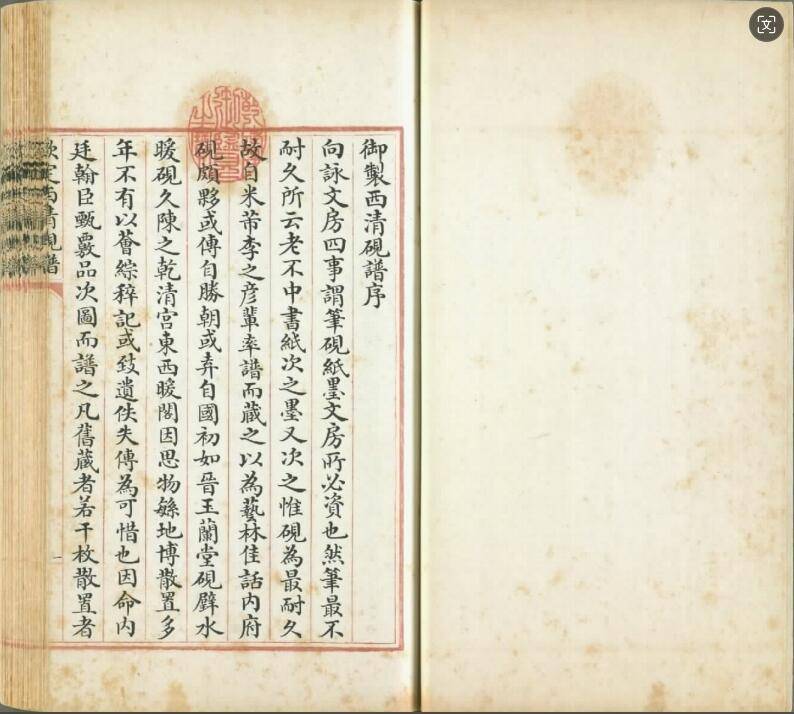 御製西清硯譜序
向詠文房四事謂筆硯紙墨文房所必資也然筆最不
耐久所云老不中書紙次之墨又次之惟硯為最耐久
故自米芾李之彦輩率譜而藏之以為藝林佳話內府
硯頗夥或傳自勝朝或弆自國初如晉玉蘭堂硯璧水
暖硯久陳之乾清宮東西暖閣因思物緐地博散置多
年不有以薈綜粹記或致遺佚失傳為可惜也因命內
廷翰臣甄覈品次圖而譜之凡舊藏者若干枚散置者
欽定西清硯譜
一